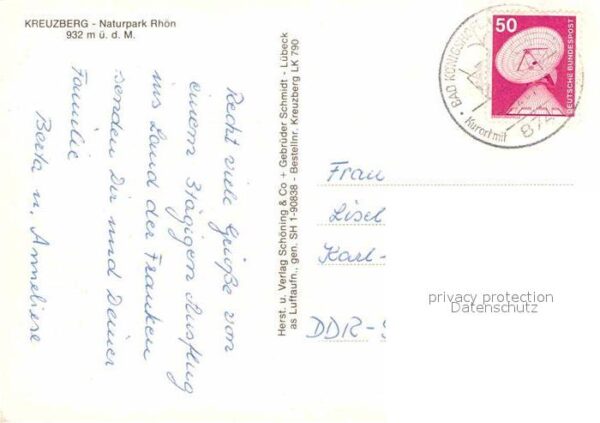 KREUZBERG - Naturpark Rhön
932 m ü. d. M.
Recht viele Grüße von
einem 3tägigen Ausflug
ins Land der Franken
senden Dir und Deiner
Familie
Berta u. Anneliese
Herst. u. Verlag Schöning & Co + Gebrüder Schmidt - Lübeck
as Luftaufn., gen. SH 1-90838 - Bestellnr. Kreuzberg LK 790
BAD
Kurort mit
874
50
DEUTSCHE BUNDESPOST
Frau
Lisel
Karl-
DDR-
privacy protection
Datenschutz